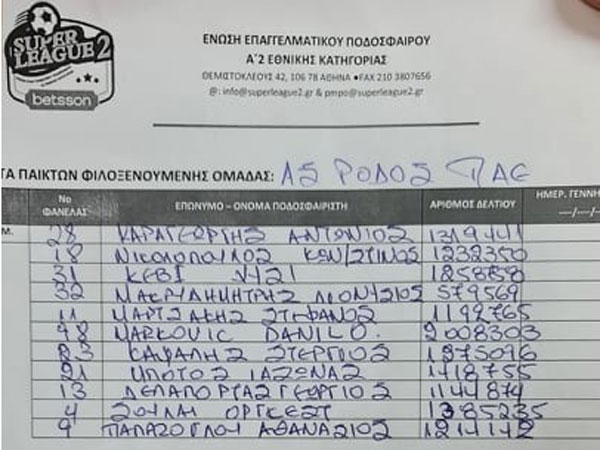 SUPER LEAGUE 2
betsson
ΕΝΩΣΗ ΕΠΑΓΓΕΛΜΑΤΙΚΟΥ ΠΟΔΟΣΦΑΙΡΟΥ
Α΄2 ΕΘΝΙΚΗΣ ΚΑΤΗΓΟΡΙΑΣ
ΘΕΜΙΣΤΟΚΛΕΟΥΣ 42, 106 78 ΑΘΗΝΑ ●FAX 210 3807656
@: info@superleague2.gr & pmpo@superleague2.gr
ΤΑ ΠΑΙΚΤΩΝ ΦΙΛΟΞΕΝΟΥΜΕΝΗΣ ΟΜΑΔΑΣ: ΑΣ ΡΟΔΟΣ ΠΑΕ
Νο ΦΑΝΕΛΑΣ ΕΠΩΝΥΜΟ – ΟΝΟΜΑ ΠΟΔΟΣΦΑΙΡΙΣΤΗ ΑΡΙΘΜΟΣ ΔΕΛΤΙΟΥ ΗΜΕΡ. ΓΕΝΝΗ
__/__/__
Μ. 28 ΚΑΡΑΓΕΩΡΓΗΣ ΑΝΤΩΝΙΟΣ 1319441
18 ΝΙΚΟΛΟΠΟΥΛΟΣ ΚΩΝ/ΣΤΙΝΟΣ 1232350
31 ΚΕΒΙ 1258758
32 ΜΑΚΡΥΔΗΜΗΤΡΗΣ ΔΙΟΝΥΣΙΟΣ 579569
11 ΜΑΡΤΣΑΚΗΣ ΣΤΕΦΑΝΟΣ 1192765
98 MARKOVIC DANILO. 2008303
23 ΚΑΨΑΛΗΣ ΣΤΕΡΓΙΟΣ 1375096
21 ΜΠΟΤΟΣ ΙΑΣΩΝΑΣ 1118755
13 ΔΕΛΑΠΟΡΤΑΣ ΓΕΩΡΓΙΟΣ 1144874
4 ΣΟΥΛΑΙ ΟΡΓΚΕΣΤ 1385235
9 ΠΑΠΑΖΟΓΛΟΥ ΑΘΑΝΑΣΙΟΣ 1214142